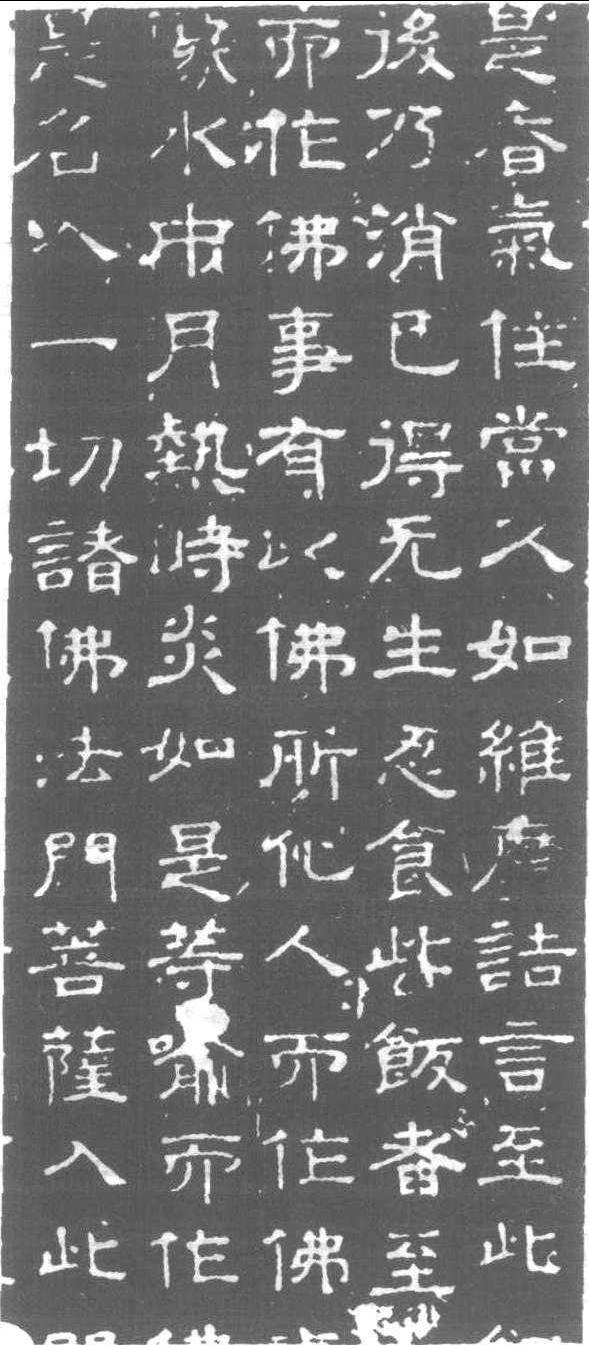 是香氣住當久如維摩詰言至此
後乃消已得无生忍食此飯者至
而作佛事有以佛所化人而作佛
像水中月熱時炎如是等喻而作
是名入一切諸佛法門菩薩入此